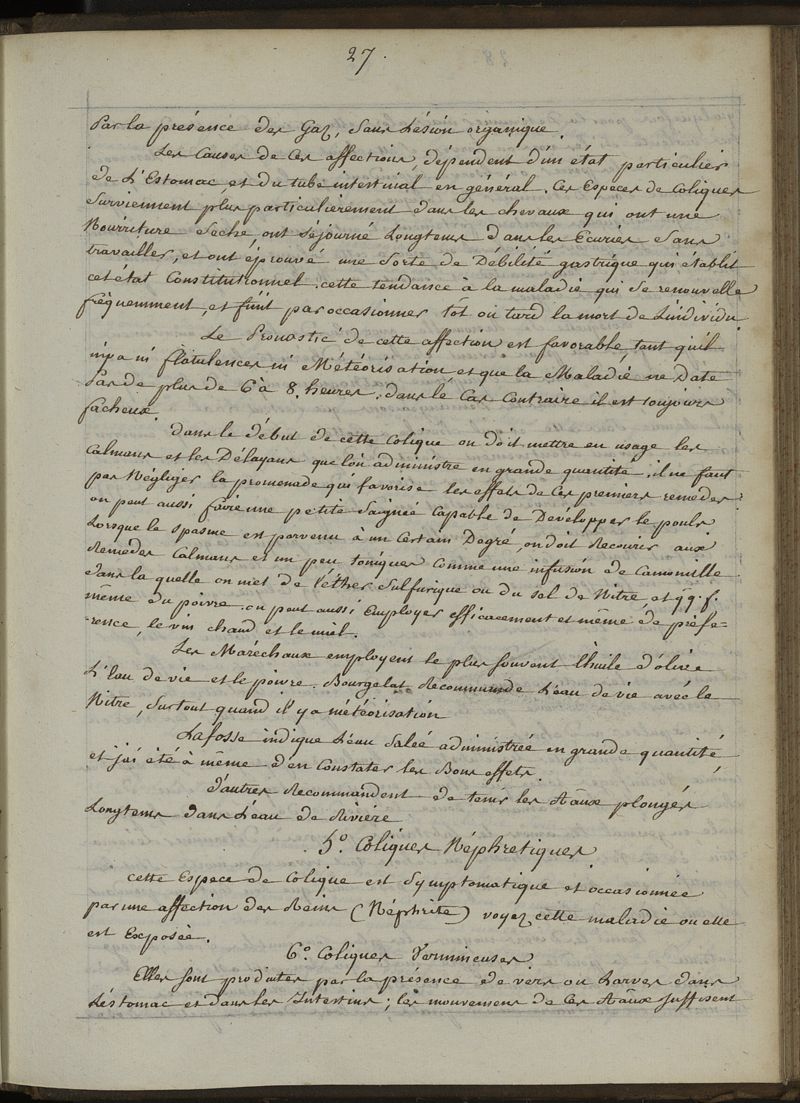 27.
Par la présence des Gaz, sans Lésion organique.
Les Causes de Ces affections, dépendent d'un état particulier
de L'Estomac et du tube intestinal en général. Ces Espèces de Coliques
Surviennent plus particulièrement dans les chevaux qui ont une
Nourriture Seche ont séjourné Longtems dans les Ecuries Sans
travailler, et ont éprouvé une Sorte de Débilité gastrique qui établit
cet état Constitutionnel. cette tendance à la maladie qui se renouvelle
fréquemment, et finit par occasionner tôt ou tard la mort de L'individu
Le Pronostic de cette affection est favorable, tant qu'il
n'y a ni flatulences ni Météorisation et que la Maladie ne Date
Pas de plus de 6 à 8. heures. dans le Cas Contraire il est toujours
facheux.
Dans le début de cette Colique on doit mettre en usage les
Calmans et les Délayans que l'on administre en grande quantité. il ne faut
pas Négliger la promenade qui favorise les effets de Ces premiers remedes
on peut aussi faire une petite Saignée Capable de Développer le pouls
Lorsque le spasme est parvenu à un Certain Degré, on doit Recourir aux
Remedes Calmans et un peu toniques Comme une infusion de Camomille
dans la quelle on met de l'éther Sulfurique ou du sel de Nitre, et qq. f.
même du poivre. on peut aussi Employer efficacement et même de préfe=
=rence, le vin chaud et le miel.
Les Maréchaux employent le plus souvent l'huile d'olive
L'Eau de vie et le poivre. Bourgelat Recommande L'eau de vie avec le
Nitre, Surtout quand il y a météorisation
Lafosse indique L'eau Salée administrée en grande quantité
et j'ai été à même d'en Constater les Bons effets.
d'autres Recommandent de tenir les A̅aux plongés
Longtems dans L'eau de Rivière
5.° Coliques Néphretiques
cette Espece de Colique est Symptomatique et occasionnée
par une affection des Reins (Néphrite) voyez cette maladie ou elle
est Exposée.
6.° Coliques Vermineuses
Elles sont produites par la présence de vers ou Larves dans
L'éstomac et dans les Intestins; les mouvemens de Ces A̅aux suffisent